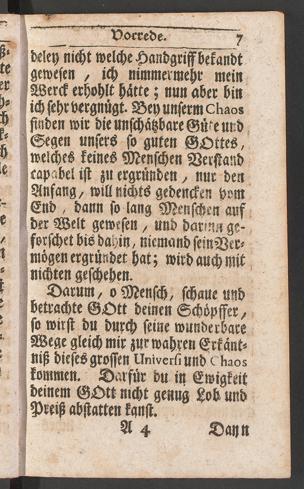 Vorrede. 7
deley nicht welche Handgriff bekandt
gewesen / ich nimmermehr mein
Werck erhohlt hätte; nun aber bin
ich sehr vergnügt. Bey unserm Chaos
finden wir die unschätzbare Güte und
Segen unsers so guten GOttes,
welches keines Menschen Verstand
capabel ist zu ergründen, nur den
Anfang, will nichts gedencken vom
End, dann so lang Menschen auf
der Welt gewesen, und darinn ge-
forschet bis dahin, niemand sein Ver-
mögen ergründet hat; wird auch mit
nichten geschehen.
Darum, o Mensch, schaue und
betrachte GOtt deinen Schöpffer,
so wirst du durch seine wunderbare
Wege gleich mir zur wahren Erkänt-
niß dieses grossen Universi und Chaos
kommen. Darfür du in Ewigkeit
deinem GOtt nicht genug Lob und
Preiß abstatten kanst.
A 4 Dann